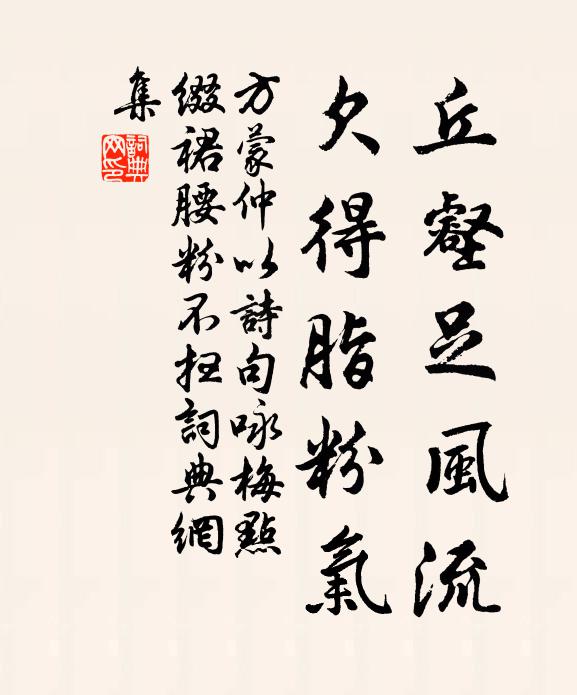 丘壑足風流
欠得脂粉氣
方蒙仲以詩句咏梅點
綴裙腰粉不扫詞典網
集
詞典網印